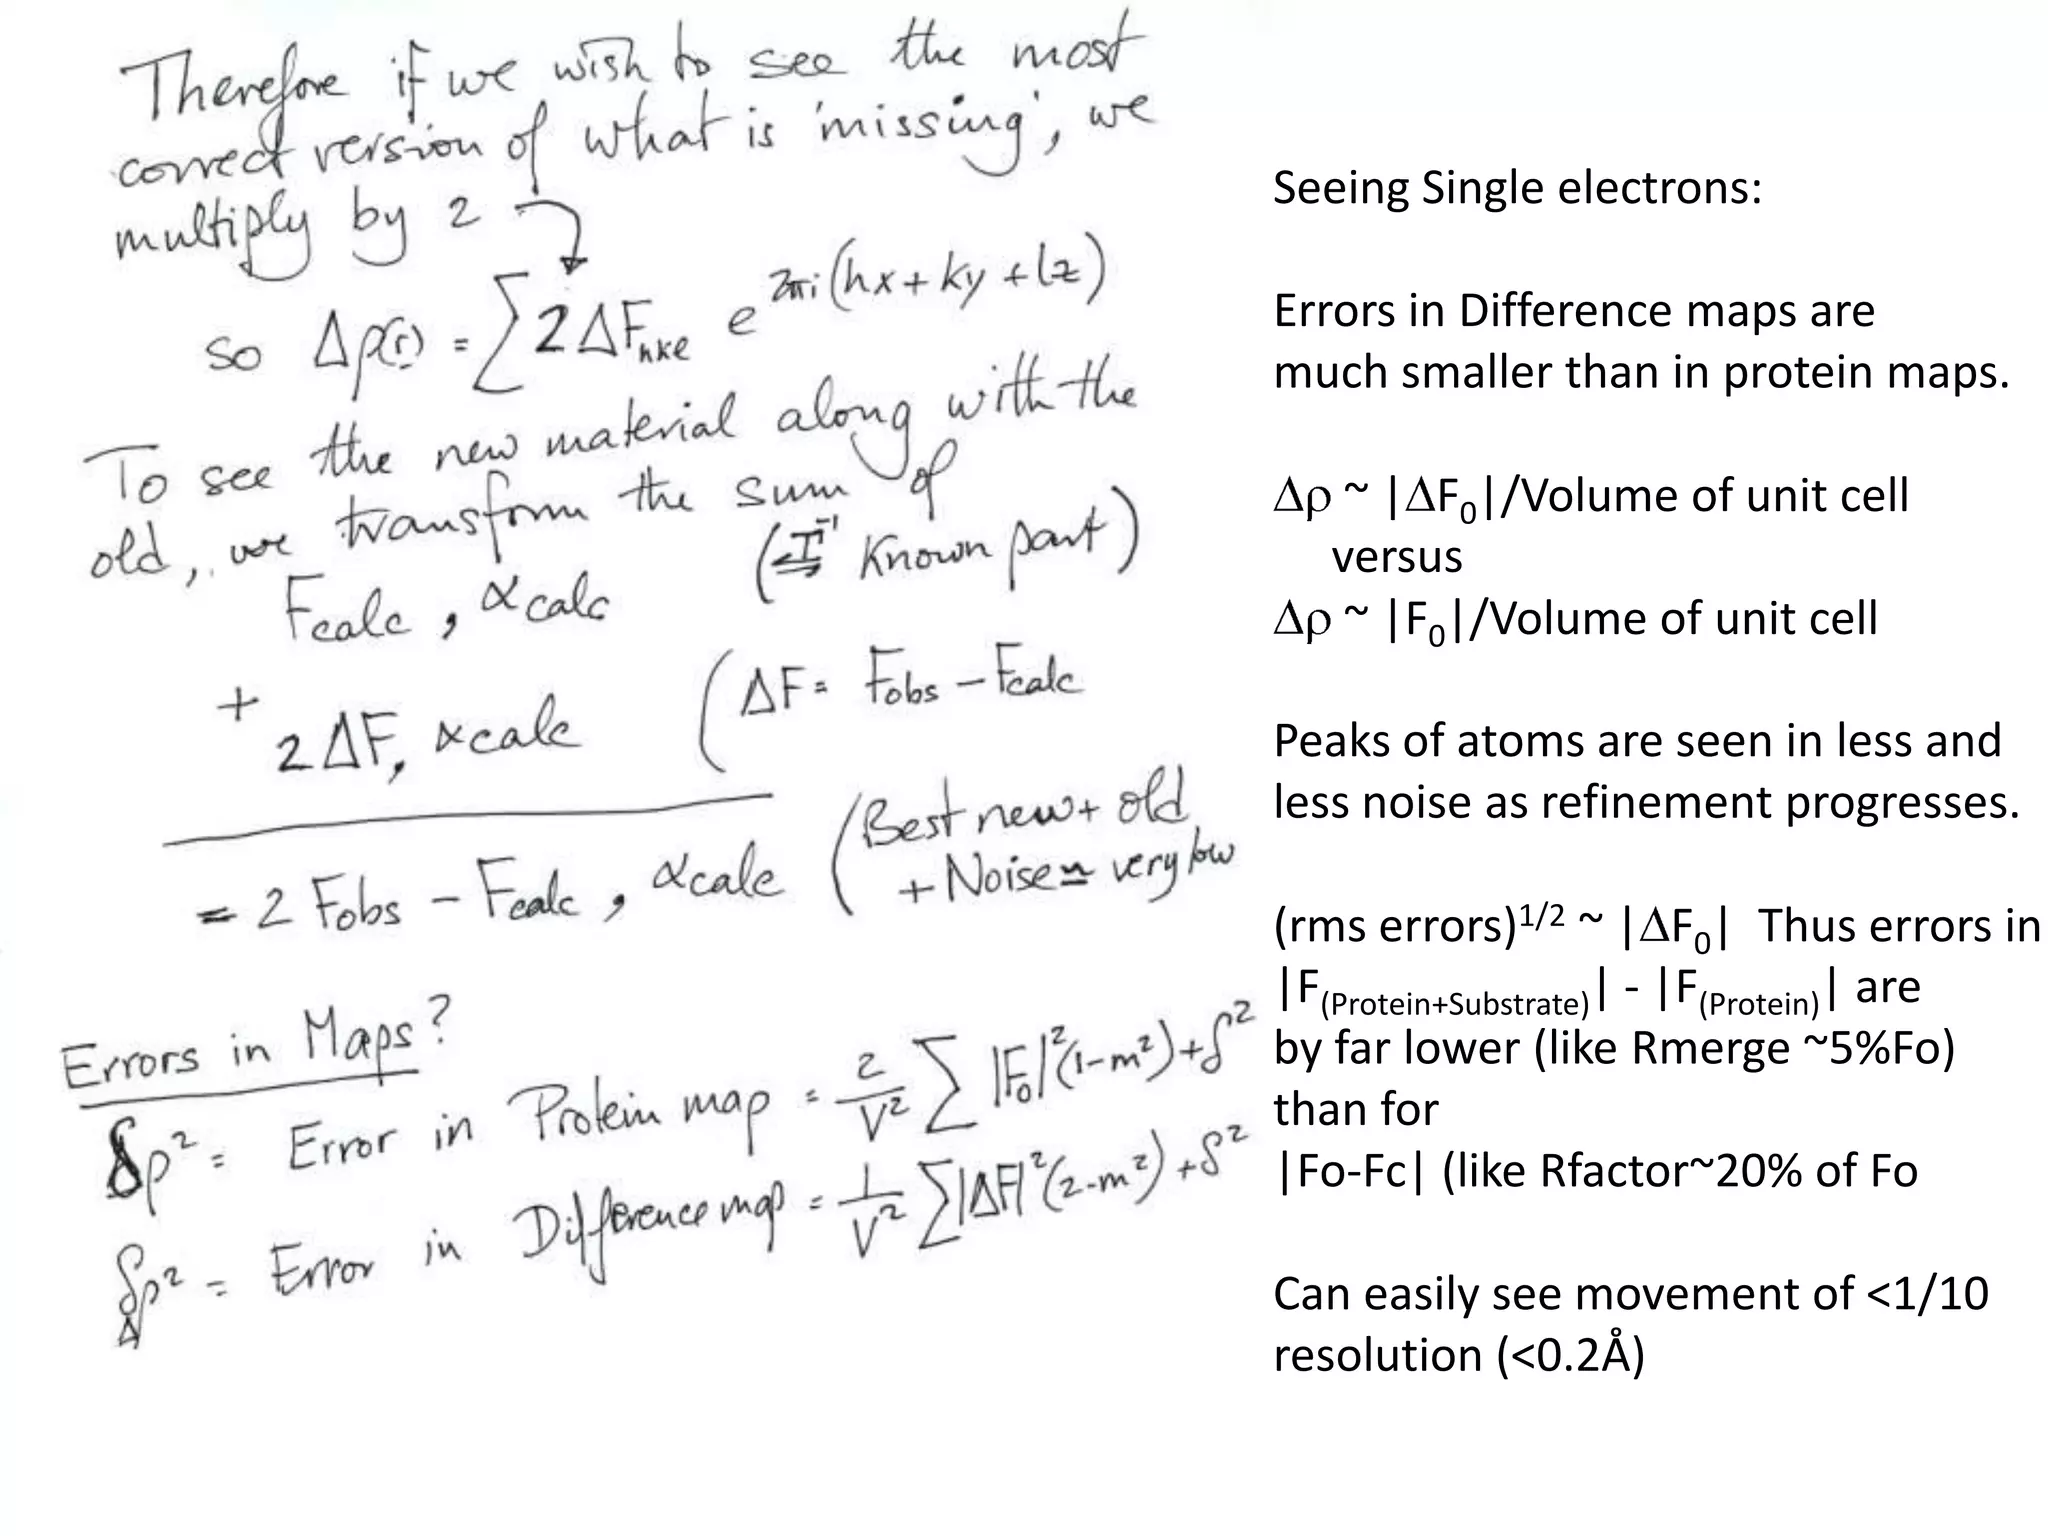 Therefore if we wish to see the most
correct version of what is 'missing', we
multiply by 2
so Δρ(r) = ∑ 2ΔFhkl e^2πi(hx+ky+lz)
To see the new material along with the
old, we transform the sum of
Fcalc, αcalc (T⁻¹ Known part)
+ 2ΔF, αcalc (ΔF = Fobs - Fcalc
= 2Fobs - Fcalc, αcalc (Best new + old
+ Noise ≃ very low
Errors in Maps?
δρ² = Error in Protein map = 2/V² ∑ |F₀|²(1-m²)+δ²
δρ²Δ = Error in Difference map = 1/V² ∑|ΔF|²(2-m²)+δ²
Seeing Single electrons:
Errors in Difference maps are
much smaller than in protein maps.
Δρ ~ |ΔF₀|/Volume of unit cell
versus
Δρ ~ |F₀|/Volume of unit cell
Peaks of atoms are seen in less and
less noise as refinement progresses.
(rms errors)1/2 ~ |ΔF₀| Thus errors in
|F(Protein+Substrate)| - |F(Protein)| are
by far lower (like Rmerge ~5%Fo)
than for
|Fo-Fc| (like Rfactor~20% of Fo
Can easily see movement of <1/10
resolution (<0.2Å)